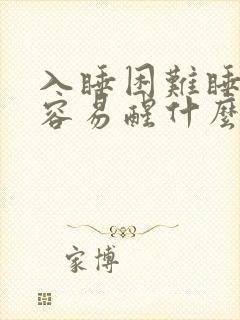 入睡困難睡
容易醒什麼
家博